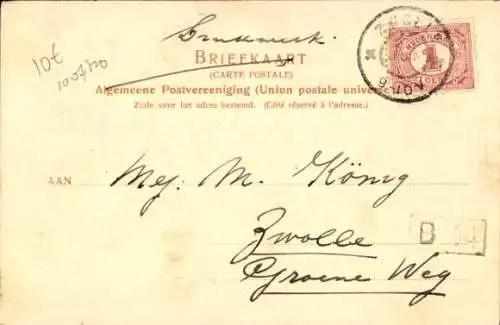 Drukwerk.
BRIEFKAART
(CARTE POSTALE)
Algemeene Postvereeniging (Union postale universelle)
Zijde voor het adres bestemd. (Côté réservé à l'adresse.)
10€
NEDERLAND
1
AAN Mej. M. König
Zwolle
Groene Weg
B 14